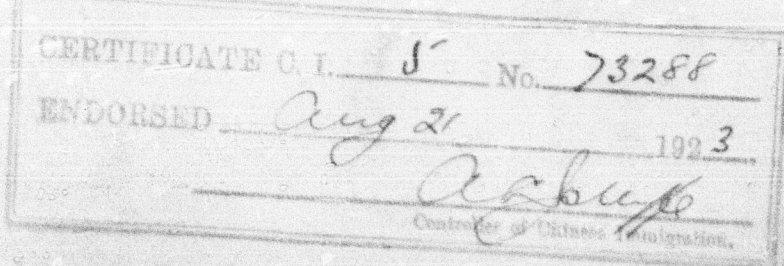 CERTIFICATE C. I. 5 No. 73288
ENDORSED Aug 21 1923
Controller of Chinese Immigration.